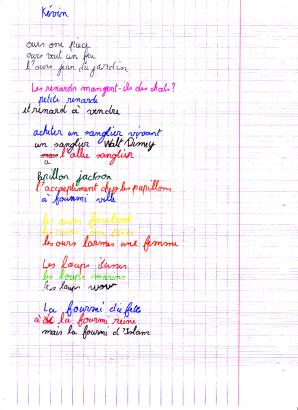 Kévin
ours one piece
ours tout un feu
l'ours jean du jardin
Les renards mangent-ils des chats?
petite renarde
et renard à vendre
acheter un sanglier vivant
un sanglier Walt Disney
à l'allée sanglier
Papillon jackson
l'accouplement chez les papillons
à fourmi ville
les ours facebook
les ours
les ours larmes une femme
Les loups
les loups marins
les loups wow
La fourmi du
à la fourmi reine
mais la fourmi d'Islam